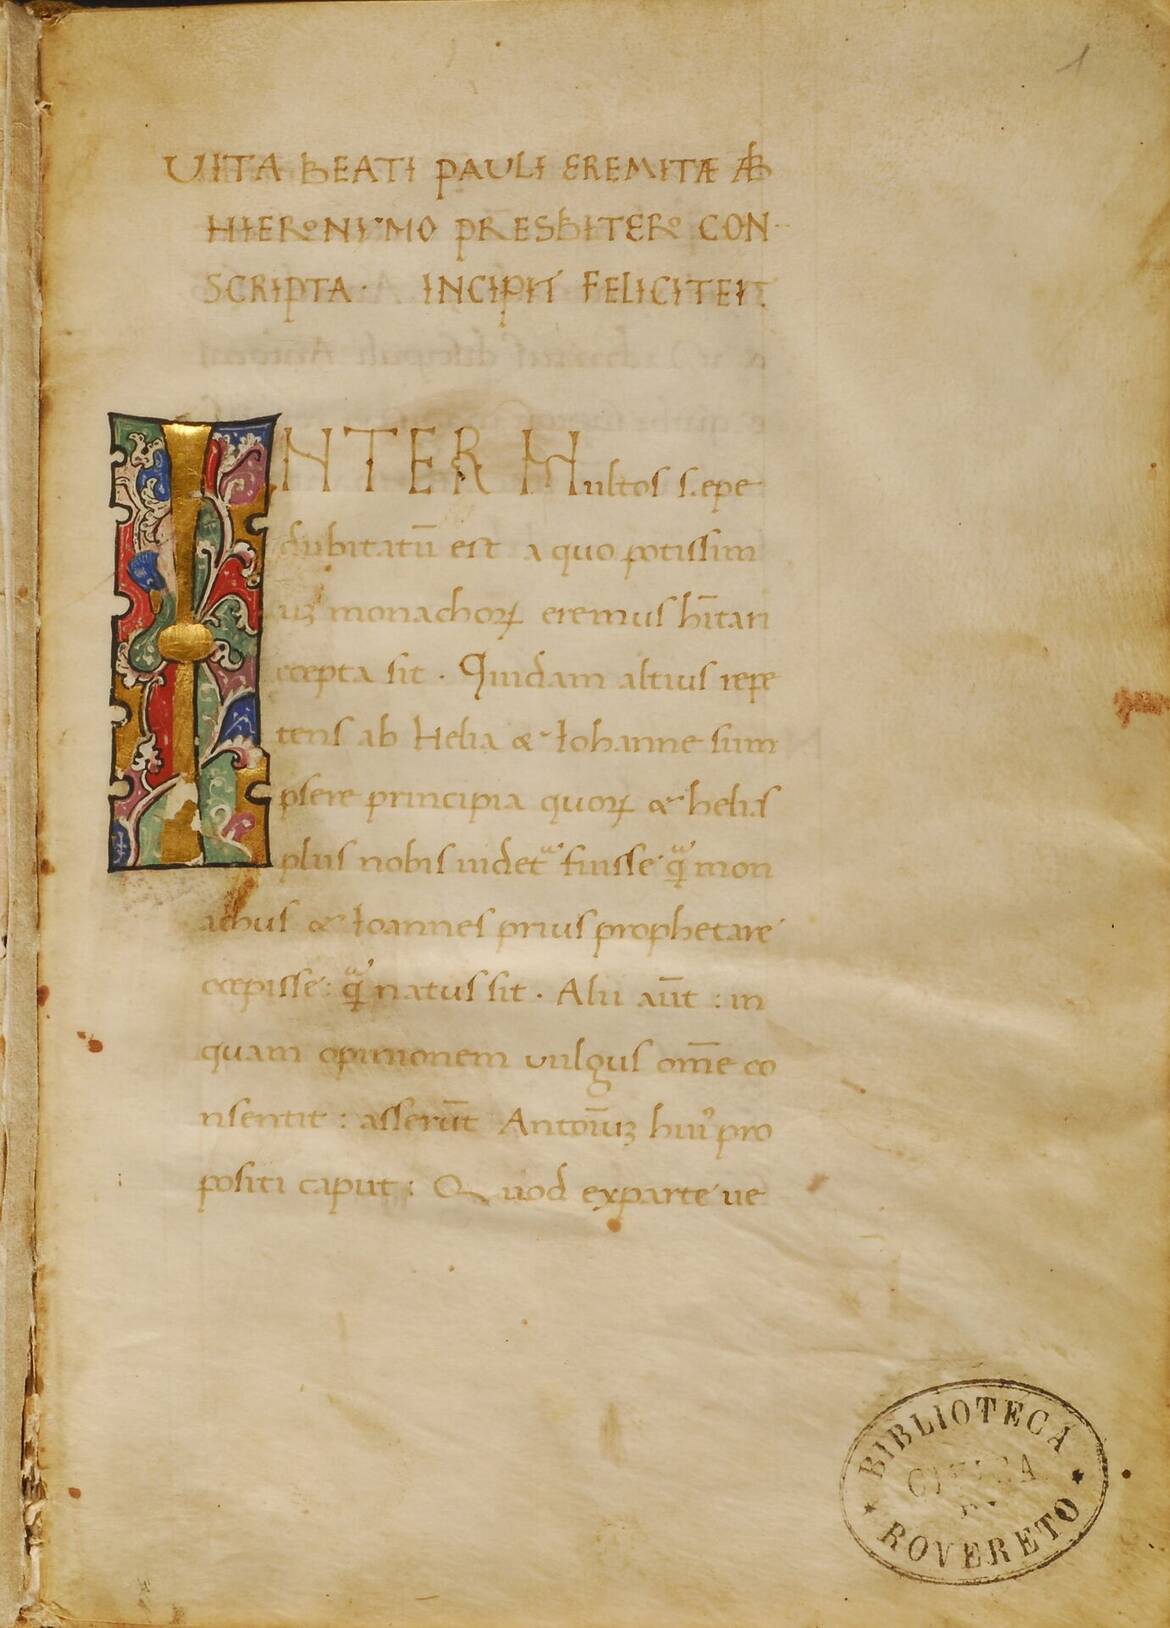 1
VITA BEATI PAULI EREMITÆ AB
HIERONYMO PRESBITERO CON
SCRIPTA · INCIPIT FELICITEIT.
INTER Multos sępe
dubitatū est a quo potissim
uꝫ monachoꝝ eremus hītari
cœpta sit · Quidam altius repe
tens ab Helia & Iohanne sum
psere principia quoꝝ & helias
plus nobis uidet᷑ fuisse q̨ͣ mon
achus & Ioannes prius prophetare
cœpisse : q̨ͣ natus sit · Alii aūt : in
quam opinionem vulgus om̄e co
nsentit : asserūt Antoīuꝫ hui᾿ pro
positi caput : Quod exparte ue
BIBLIOTECA
CIVICA
ROVERETO